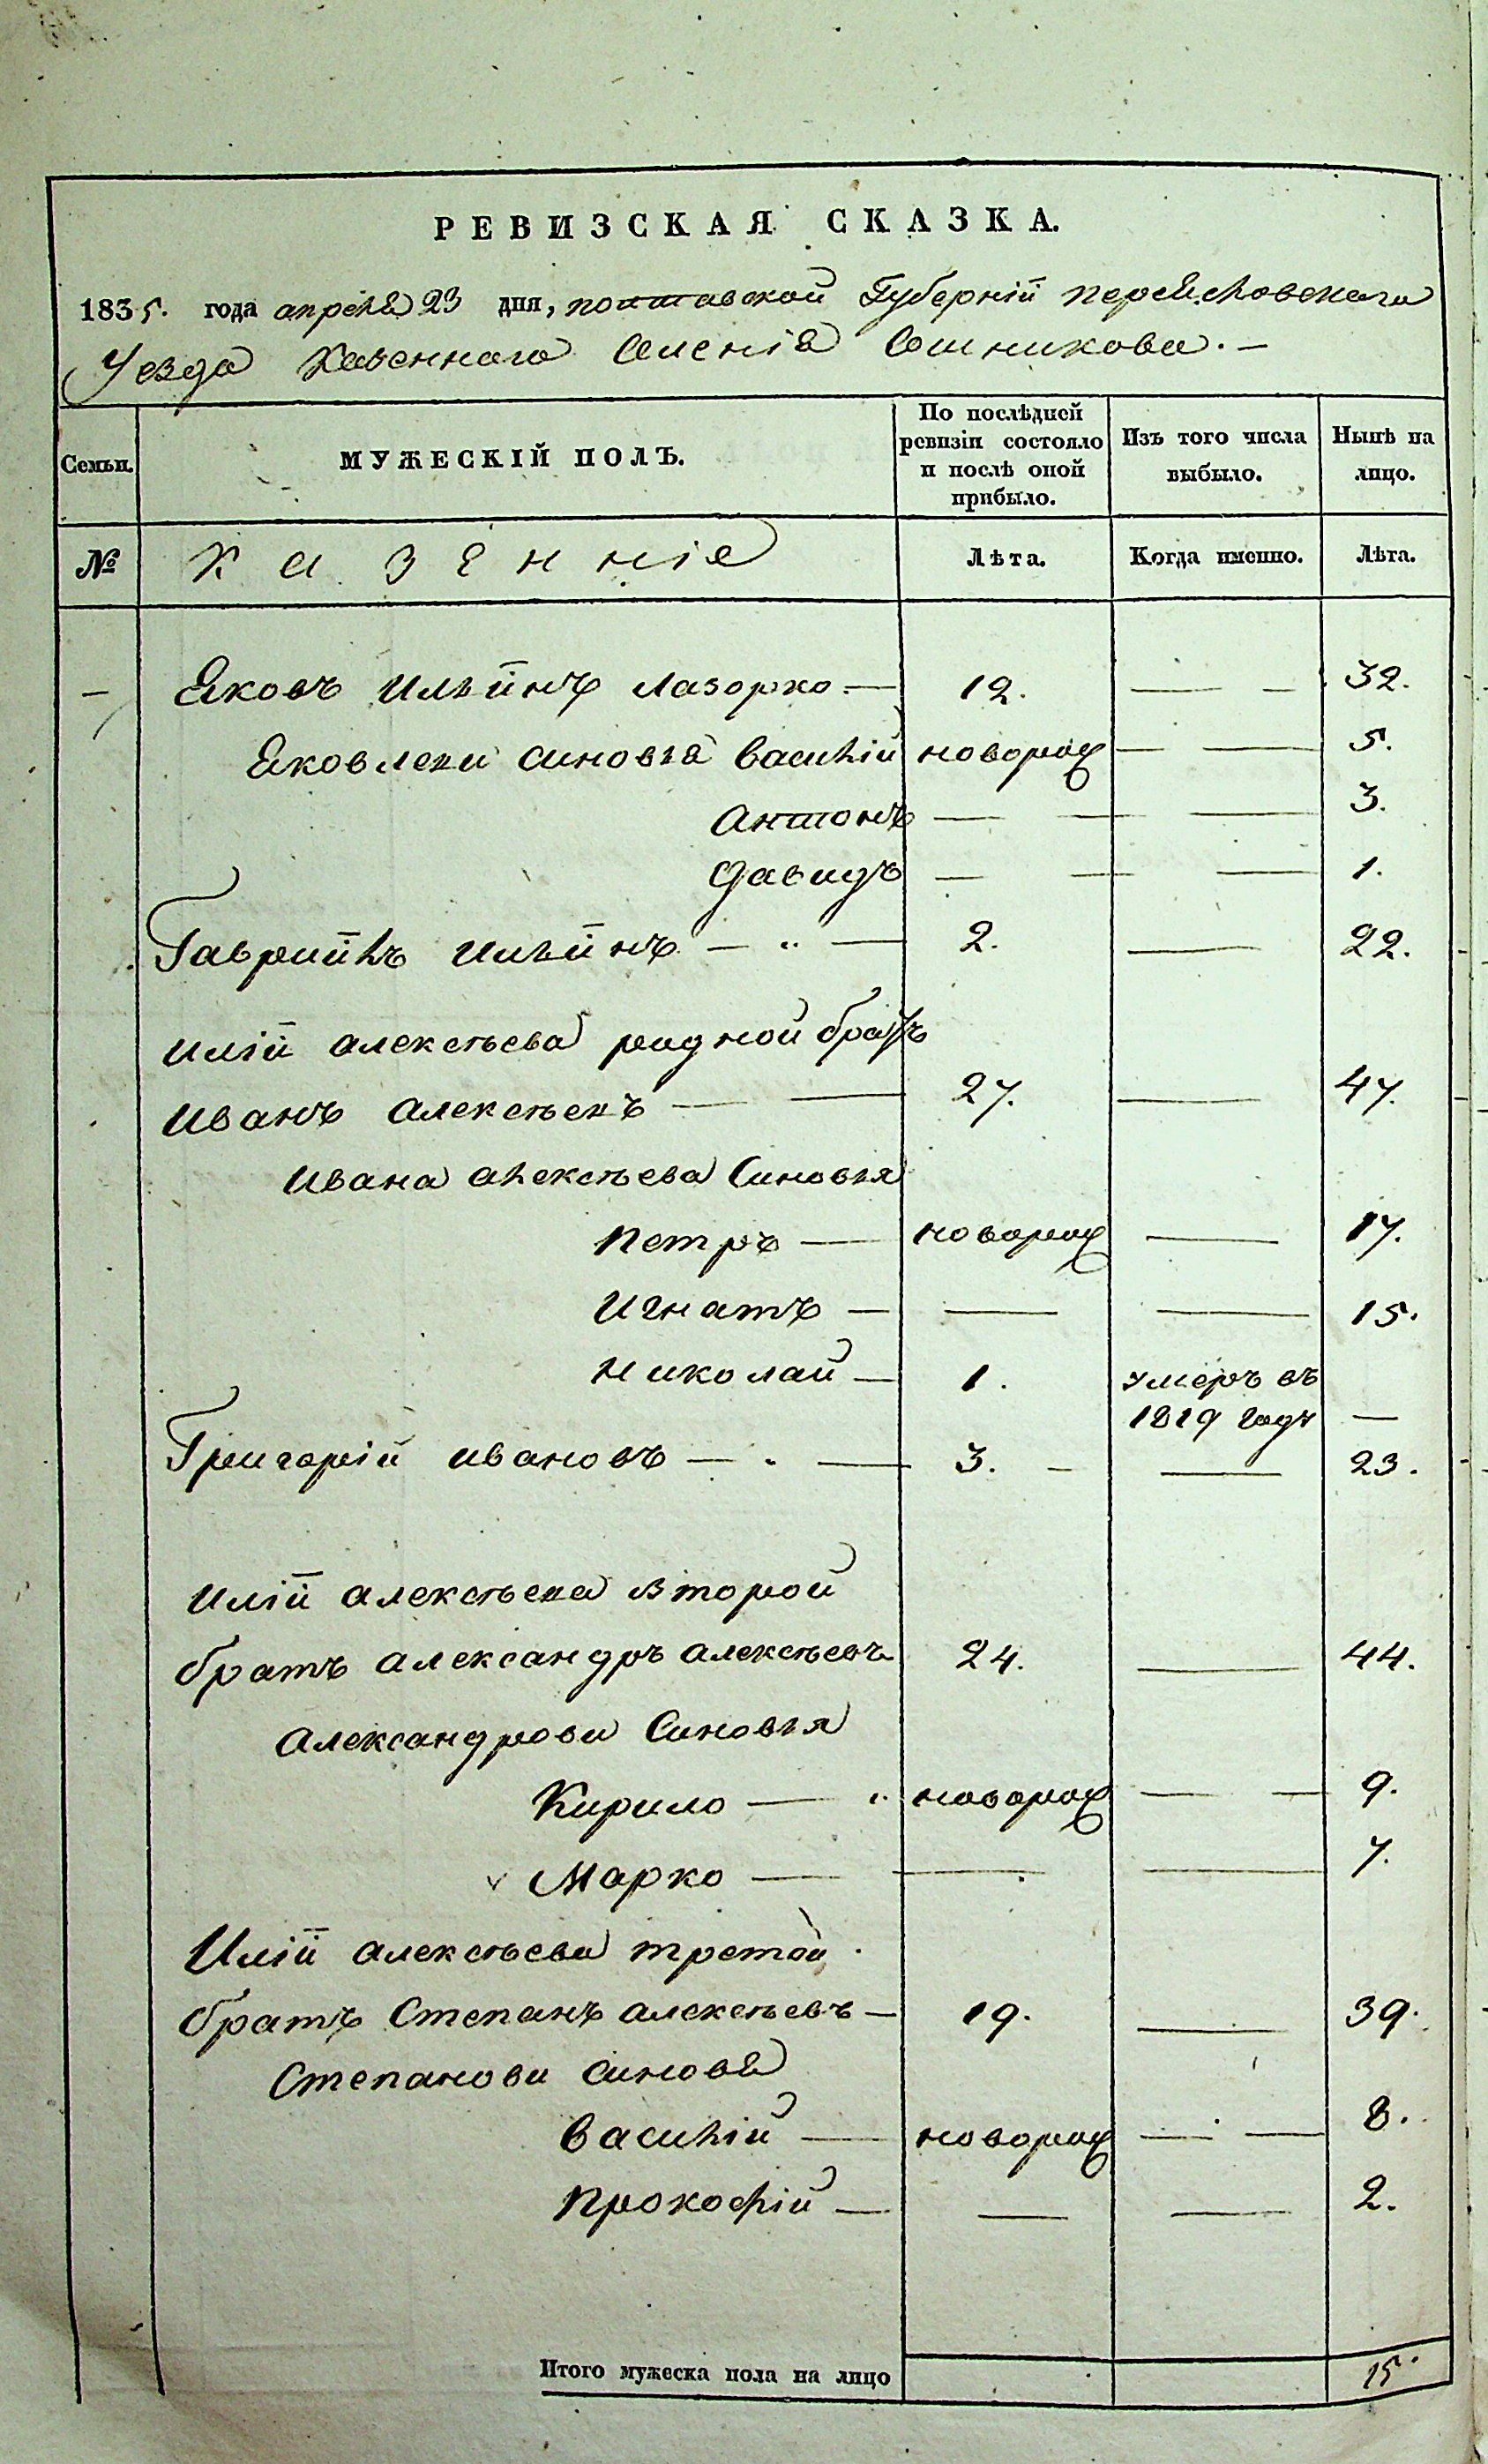 РЕВИЗСКАЯ СКАЗКА.
1835. года апреля 23 дня, полтавской Губерніи переясловскаго
Уезда Казенного Селенія Сошникова.—
Семьи. МУЖЕСКІЙ ПОЛЪ. По послѣдней ревизіи состояло и послѣ оной прибыло. Изъ того числа выбыло. Нынѣ на лицо.
№ Казенніе Лѣта. Когда именно. Лѣта.
— Яковъ Ильинъ Лазорко.— 12. — — 32.
Яковлеви синовья Василій новорож — — 5.
Антонъ — — — 3.
Давидъ — — — 1.
Гавріилъ Ильинъ — „ — 2. — 22.
Иліи алексѣева родной братъ
Иванъ Алексѣевъ — — 27. — 47.
Ивана алексѣева Синовья
Петръ — новорож — 17.
Игнатъ — — — 15.
Николай — 1. умеръ въ
1819 годъ —
Григорій Ивановъ — . — 3. — — 23.
Иліи алексѣева второй
братъ александръ алексѣевъ 24. — 44.
Александрови Синовья
Кирило — „ новорож — — 9.
Марко — — — 7.
Иліи алексѣева третой
братъ Степанъ алексѣевъ — 19. — 39.
Степанови синовя
Василій — новорож — — 8.
Прокофій — — — 2.
Итого мужеска пола на лицо 15.